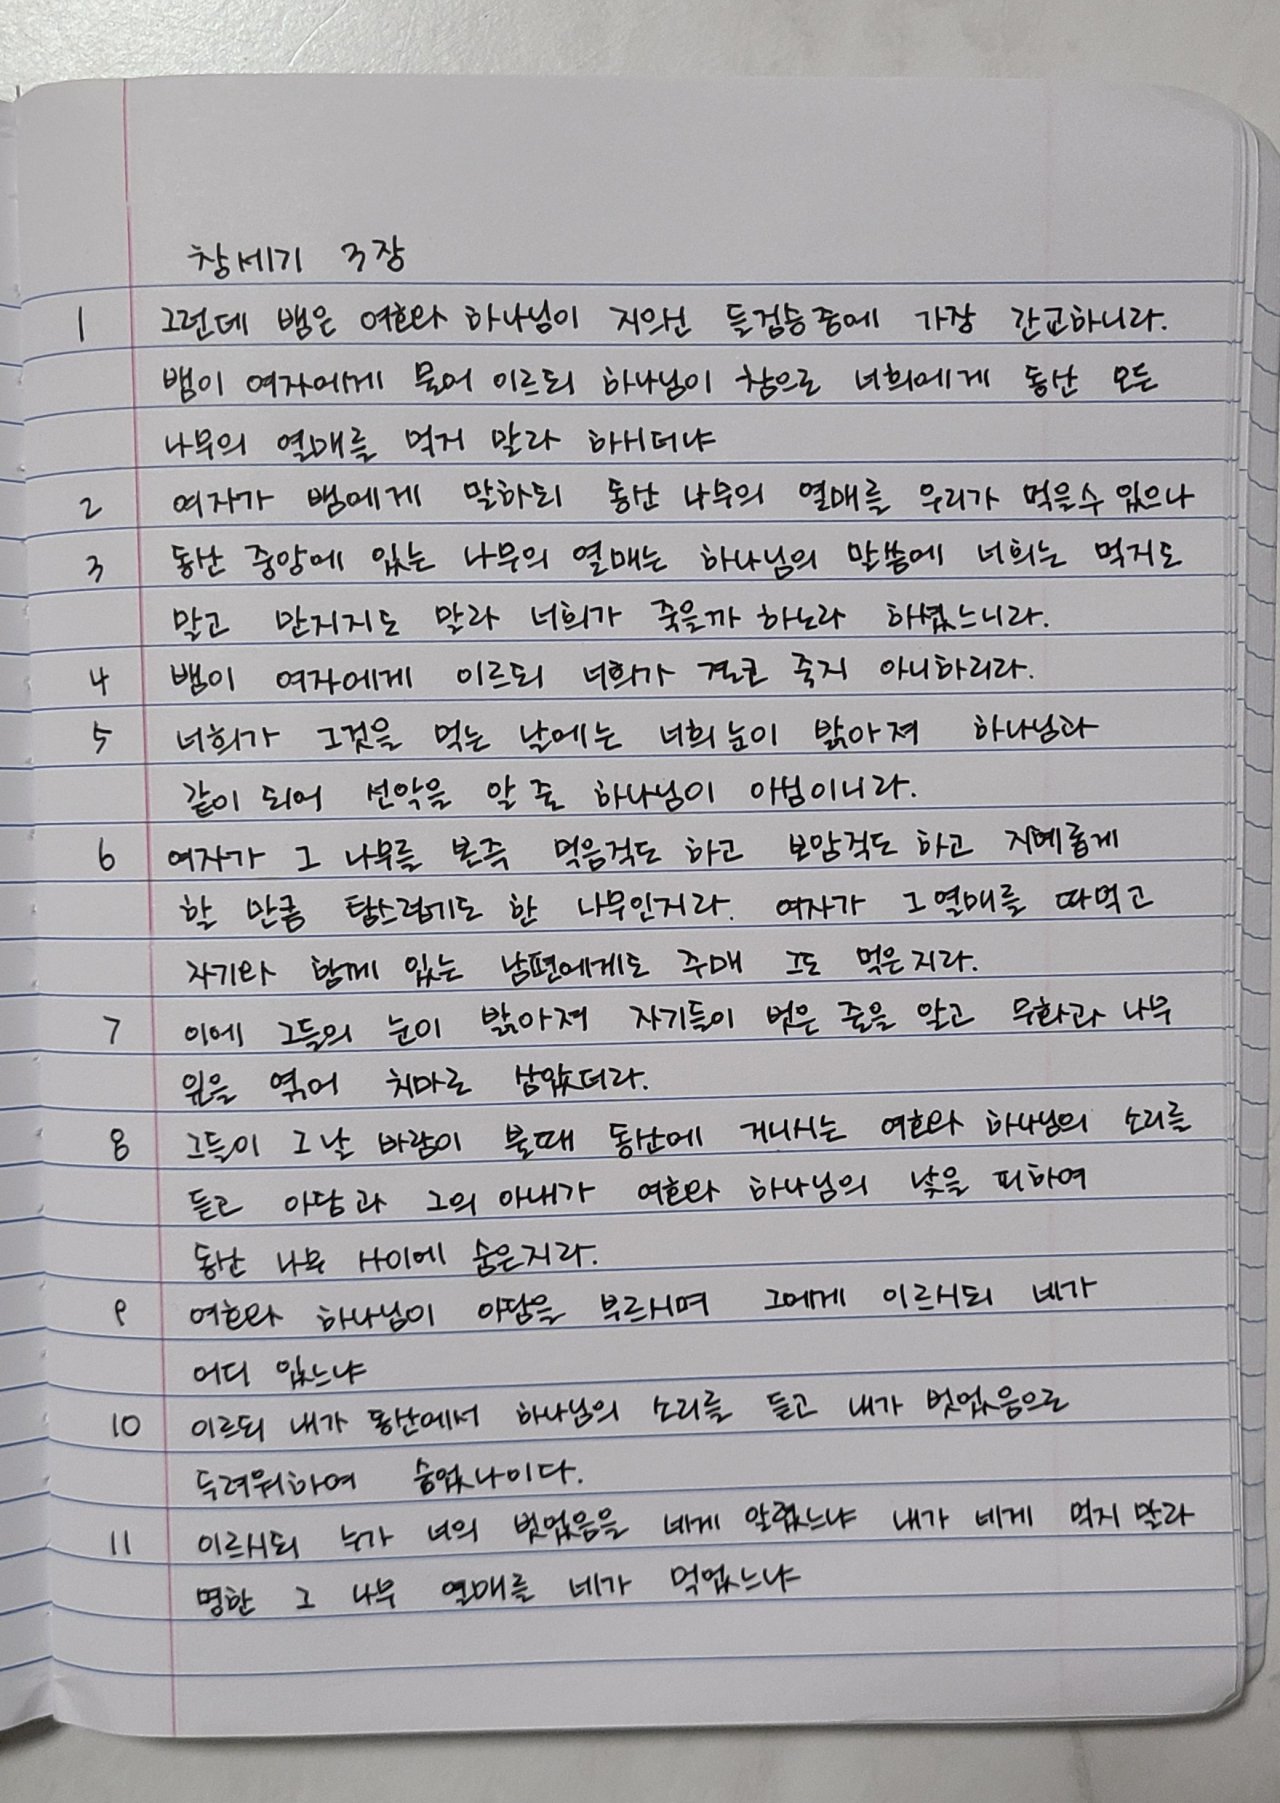 창세기 3장
1 그런데 뱀은 여호와 하나님이 지으신 들짐승중에 가장 간교하니라.
뱀이 여자에게 물어 이르되 하나님이 참으로 너희에게 동산 모든
나무의 열매를 먹지 말라 하시더냐
2 여자가 뱀에게 말하되 동산 나무의 열매를 우리가 먹을수 있으나
3 동산 중앙에 있는 나무의 열매는 하나님의 말씀에 너희는 먹지도
말고 만지지도 말라 너희가 죽을까 하노라 하셨느니라.
4 뱀이 여자에게 이르되 너희가 결코 죽지 아니하리라.
5 너희가 그것을 먹는 날에는 너희 눈이 밝아져 하나님과
같이 되어 선악을 알 줄 하나님이 아심이니라.
6 여자가 그 나무를 본즉 먹음직도 하고 보암직도 하고 지혜롭게
할 만큼 탐스럽기도 한 나무인지라. 여자가 그 열매를 따먹고
자기와 함께 있는 남편에게도 주매 그도 먹은지라.
7 이에 그들의 눈이 밝아져 자기들이 벗은 줄을 알고 무화과 나무
잎을 엮어 치마로 삼았더라.
8 그들이 그 날 바람이 불때 동산에 거니시는 여호와 하나님의 소리를
듣고 아담과 그의 아내가 여호와 하나님의 낯을 피하여
동산 나무 사이에 숨은지라.
9 여호와 하나님이 아담을 부르시며 그에게 이르시되 네가
어디 있느냐
10 이르되 내가 동산에서 하나님의 소리를 듣고 내가 벗었음으로
두려워하여 숨었나이다.
11 이르시되 누가 너의 벗었음을 네게 알렸느냐 내가 네게 먹지 말라
명한 그 나무 열매를 네가 먹었느냐